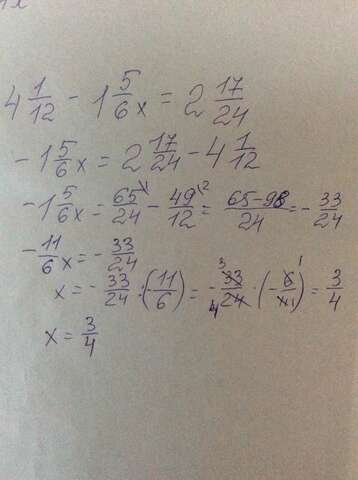 4 1/12 - 1 5/6 x = 2 17/24
- 1 5/6 x = 2 17/24 - 4 1/12
- 1 5/6 x = 65\1/24 - 49\2/12 = 65-98/24 = - 33/24
- 11/6 x = - 33/24
x = - 33/24 : (- 11/6) = - 33 3/24 4 · (- 6 1/11 1) = 3/4
x = 3/4